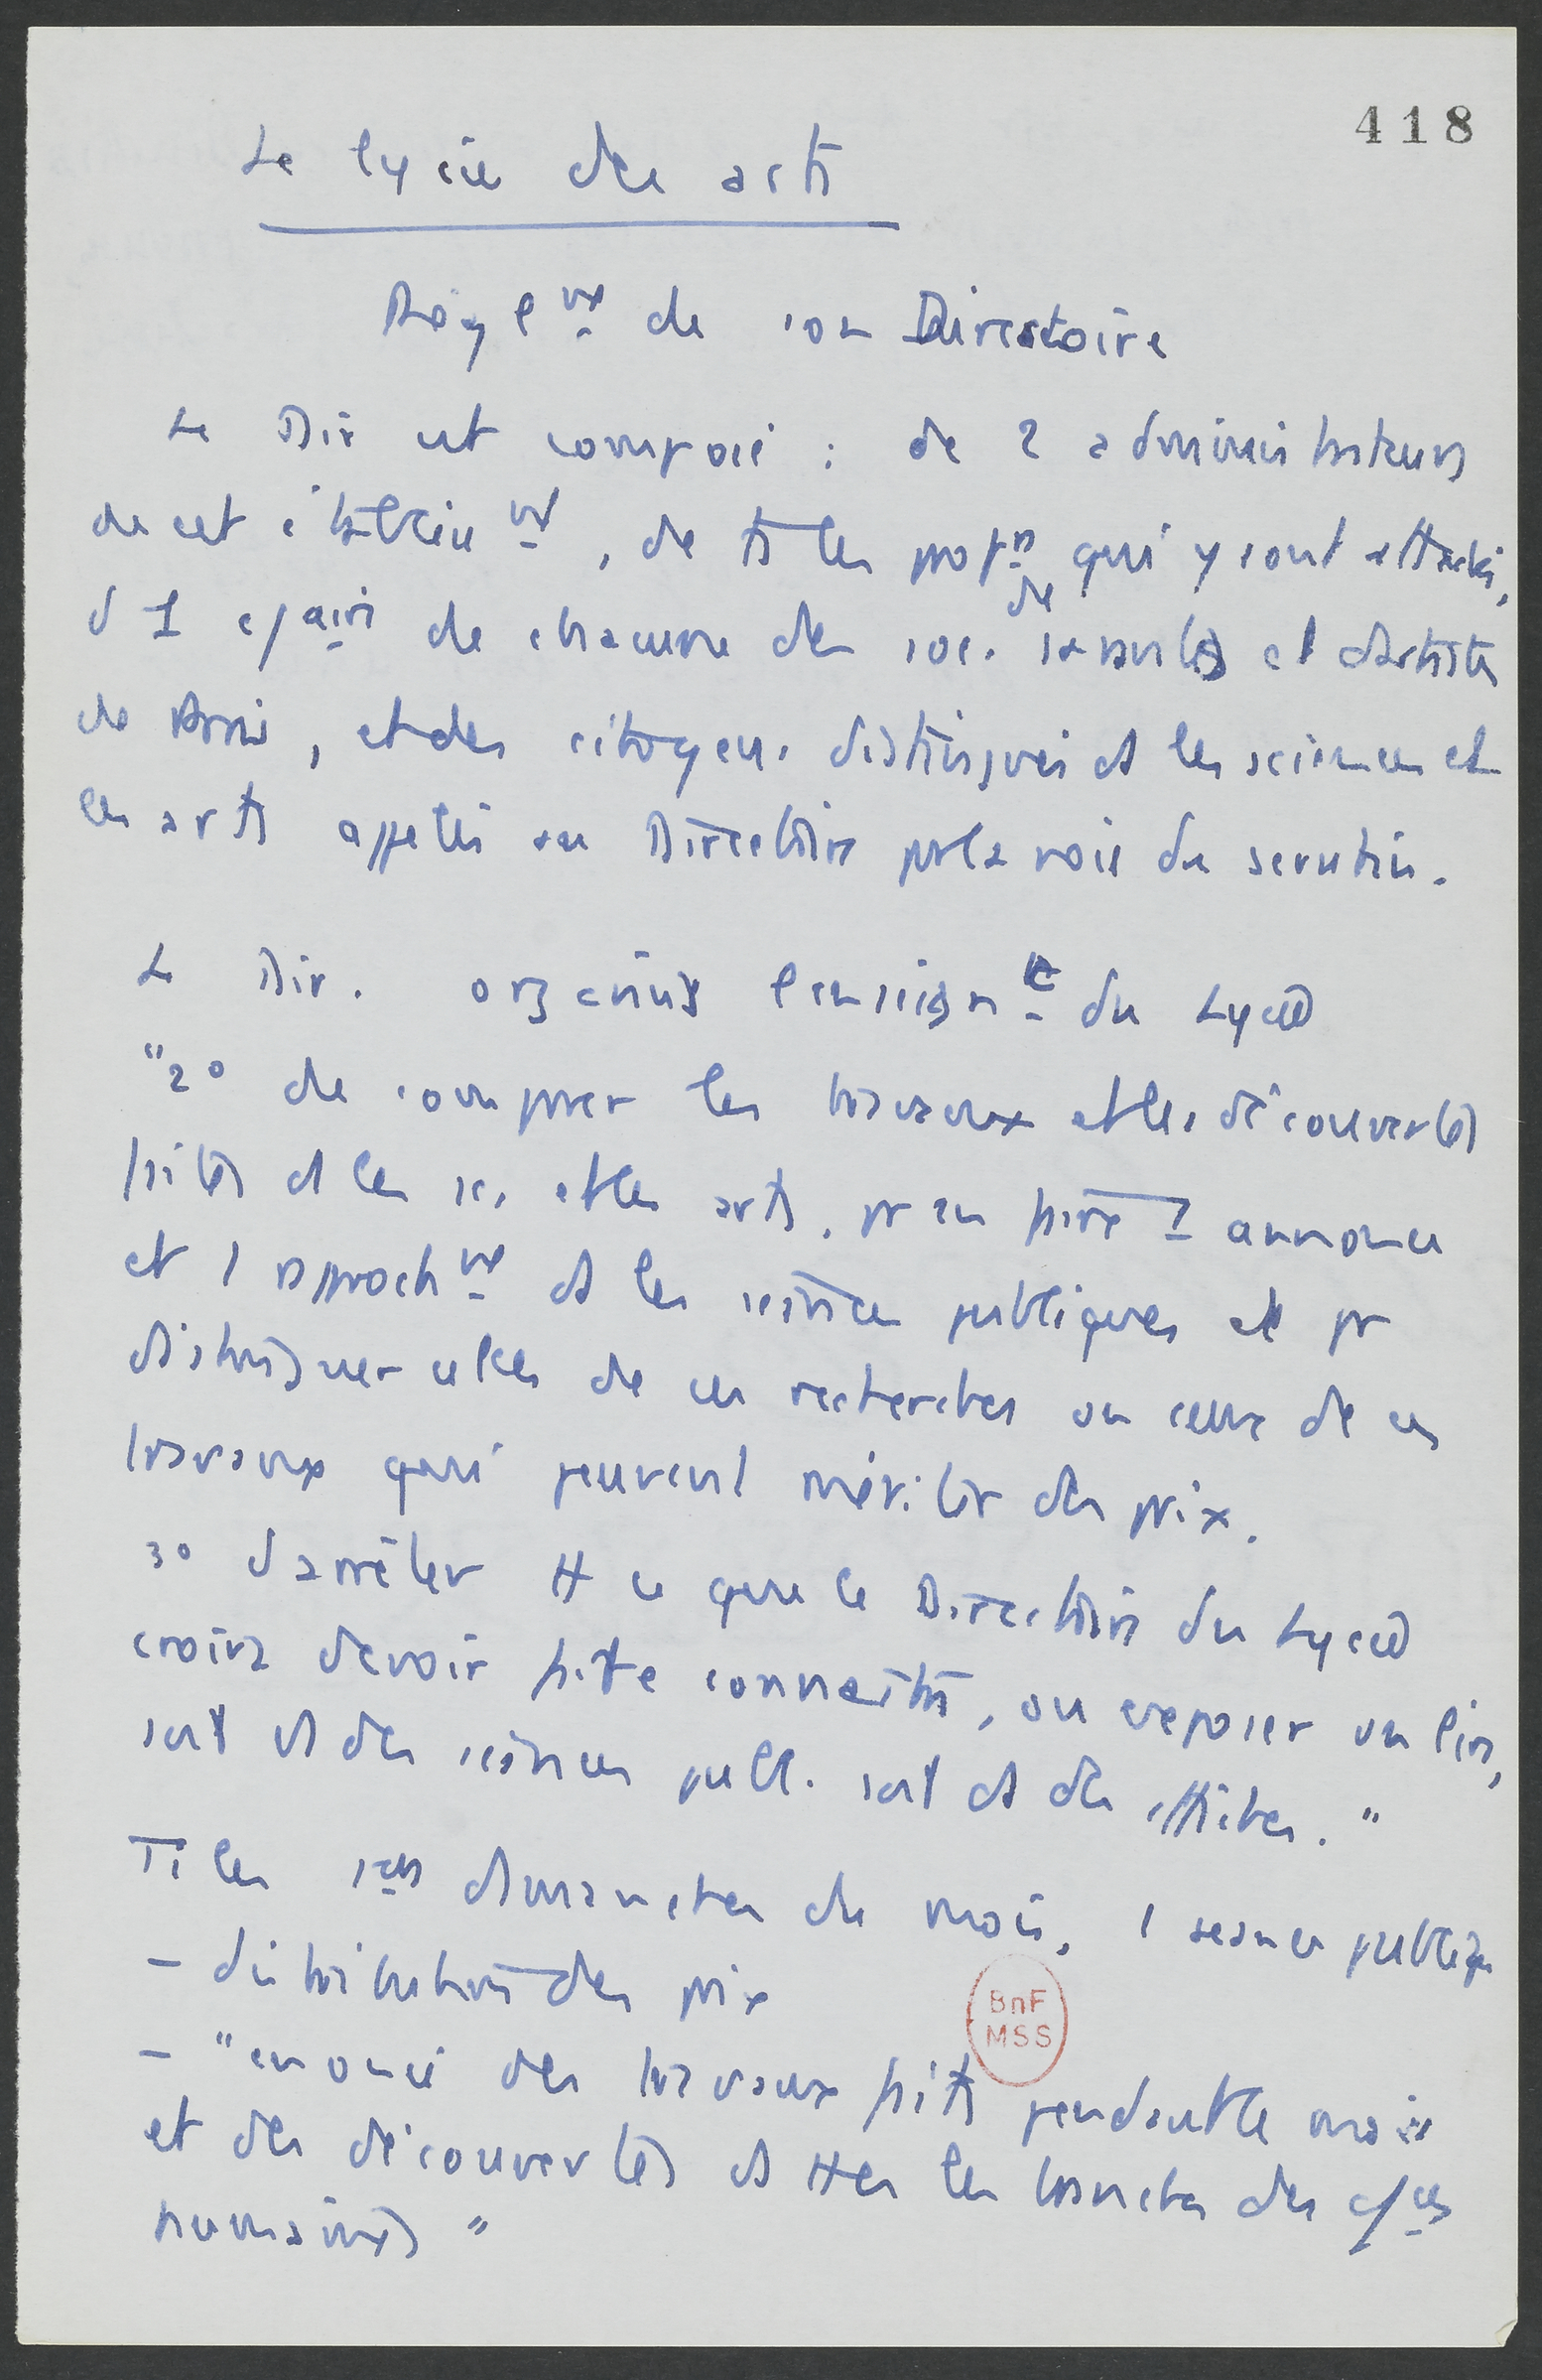 418
Le lycée des arts
Règlnt de son Directoire
Le Dir est composé : de 2 administrateurs
de cet établient, de ts les profrs qui y sont attachés,
d 1 cssaire de chacune des soc. de savantes et d'artistes
de Paris, et des citoyens distingués ds les sciences et
les arts appelés au Directoire par la voie du scrutin.
Le Dir. organise l'enseignt du Lycée
"2° de comparer les travaux et les découvertes
faites ds les sc. et les arts, pr en faire 1 annonce
et 1 rapprocht ds les séances publiques et pr
distinguer celles de ces recherches ou ceux de ces
travaux qui peuvent mériter des prix.
3° d'arrêter tt ce que le Directoire du Lycée
croira devoir faire connaître, ou exposer ou lire,
soit ds des séances publ. soit ds des affiches."
Ts les 1ers dimanches du mois, 1 séance publique
- distribution des prix
- "énoncé des travaux faits pendant le mois
et des découvertes ds ttes les branches des cces
humaines"
BnF
MSS